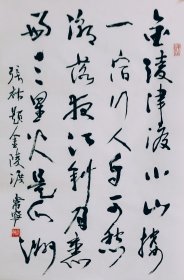 金陵津渡小山樓
一宿行人自可愁
潮落夜江斜月裏
兩三星火是瓜洲
張祜題金陵渡